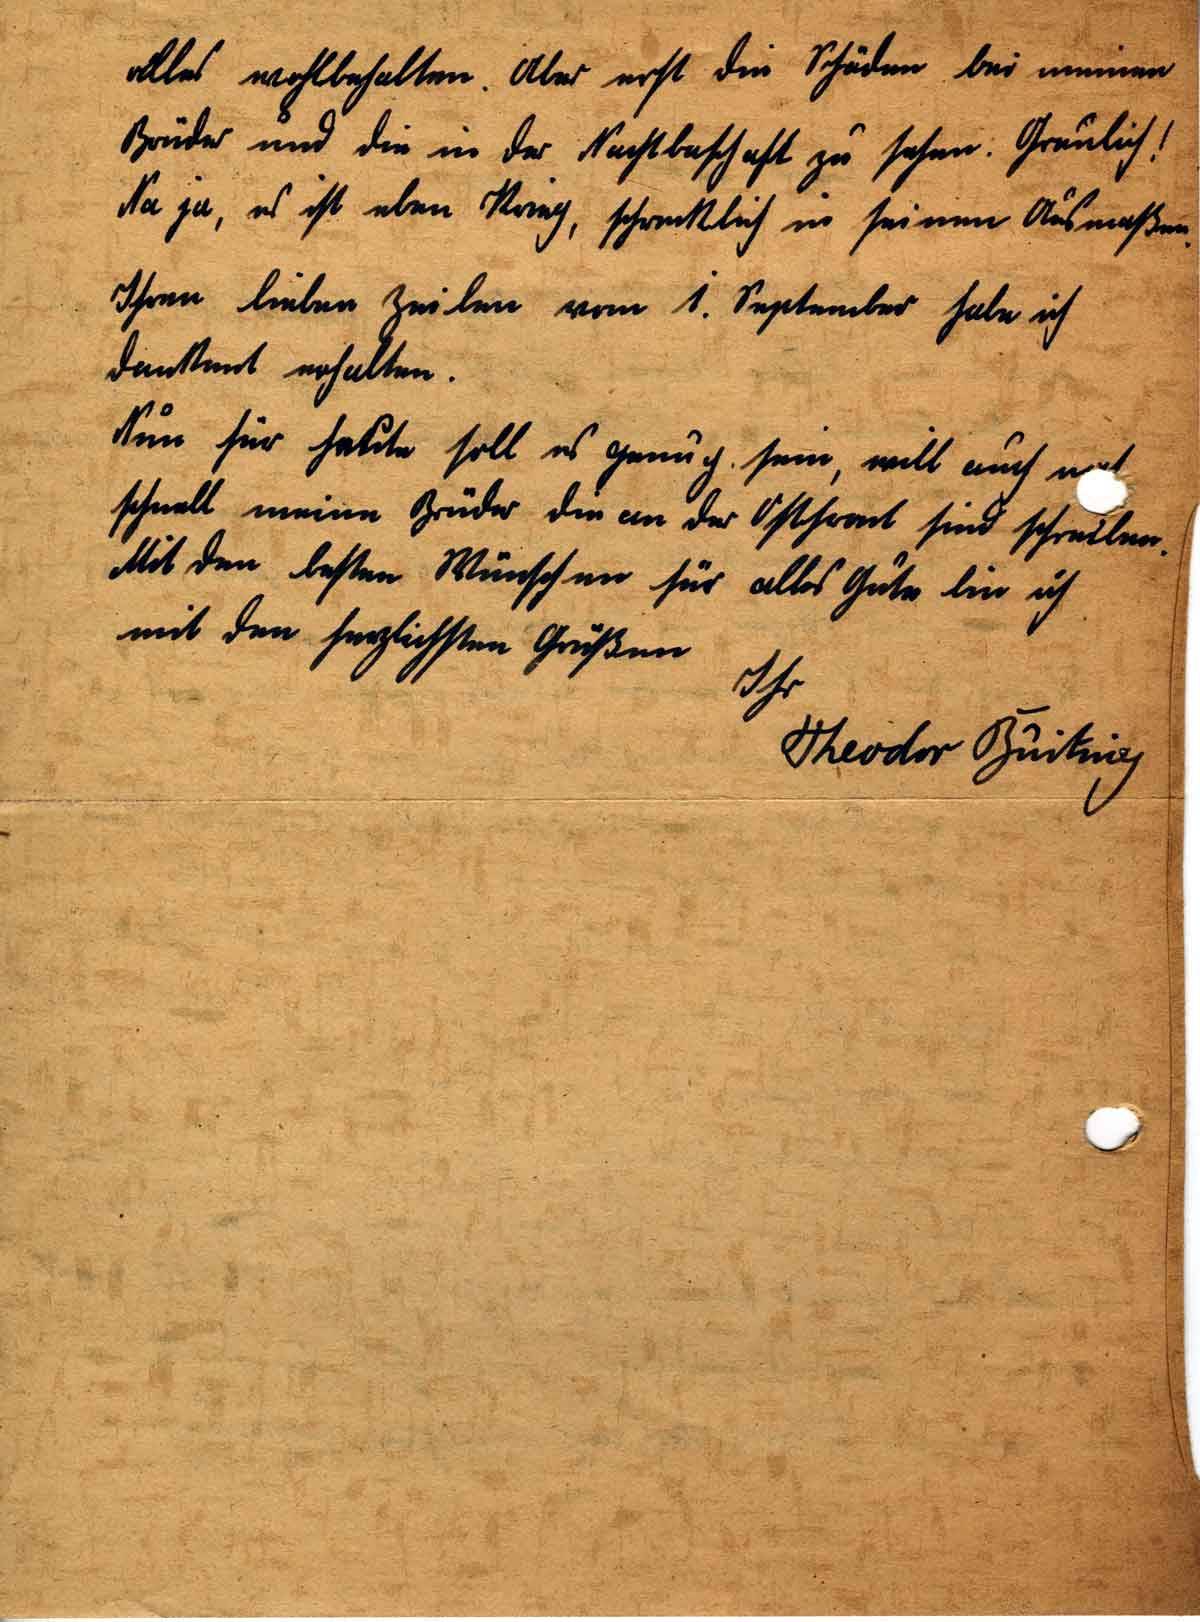 alles wohlbehalten. Aber erst die Schäden bei meinen
Brüder und die in der Nachtbaschaft zu sehen. Greulich!
Na ja, es ist eben Krieg, schrecklich in seinen Ausmaßen.
Ihren lieben Zeilen vom 1. September habe ich
dankent erhalten.
Nun für heute soll es genug sein, will auch
schnell meine Brüder die an der Ostfront sind schreiben.
Mit den besten Wünschen für alles Gute bin ich
mit den herzlichsten Grüßen
Ihr
Theodor